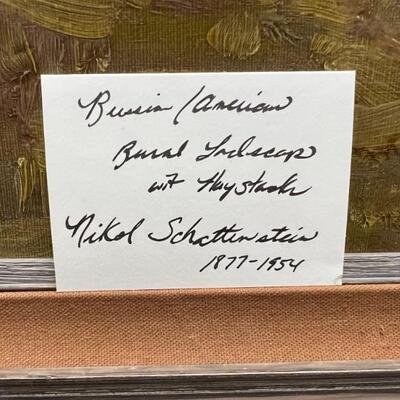 Russian / American
Rural Landscape
with Haystacks
Nikol Schattenstein
1877-1954